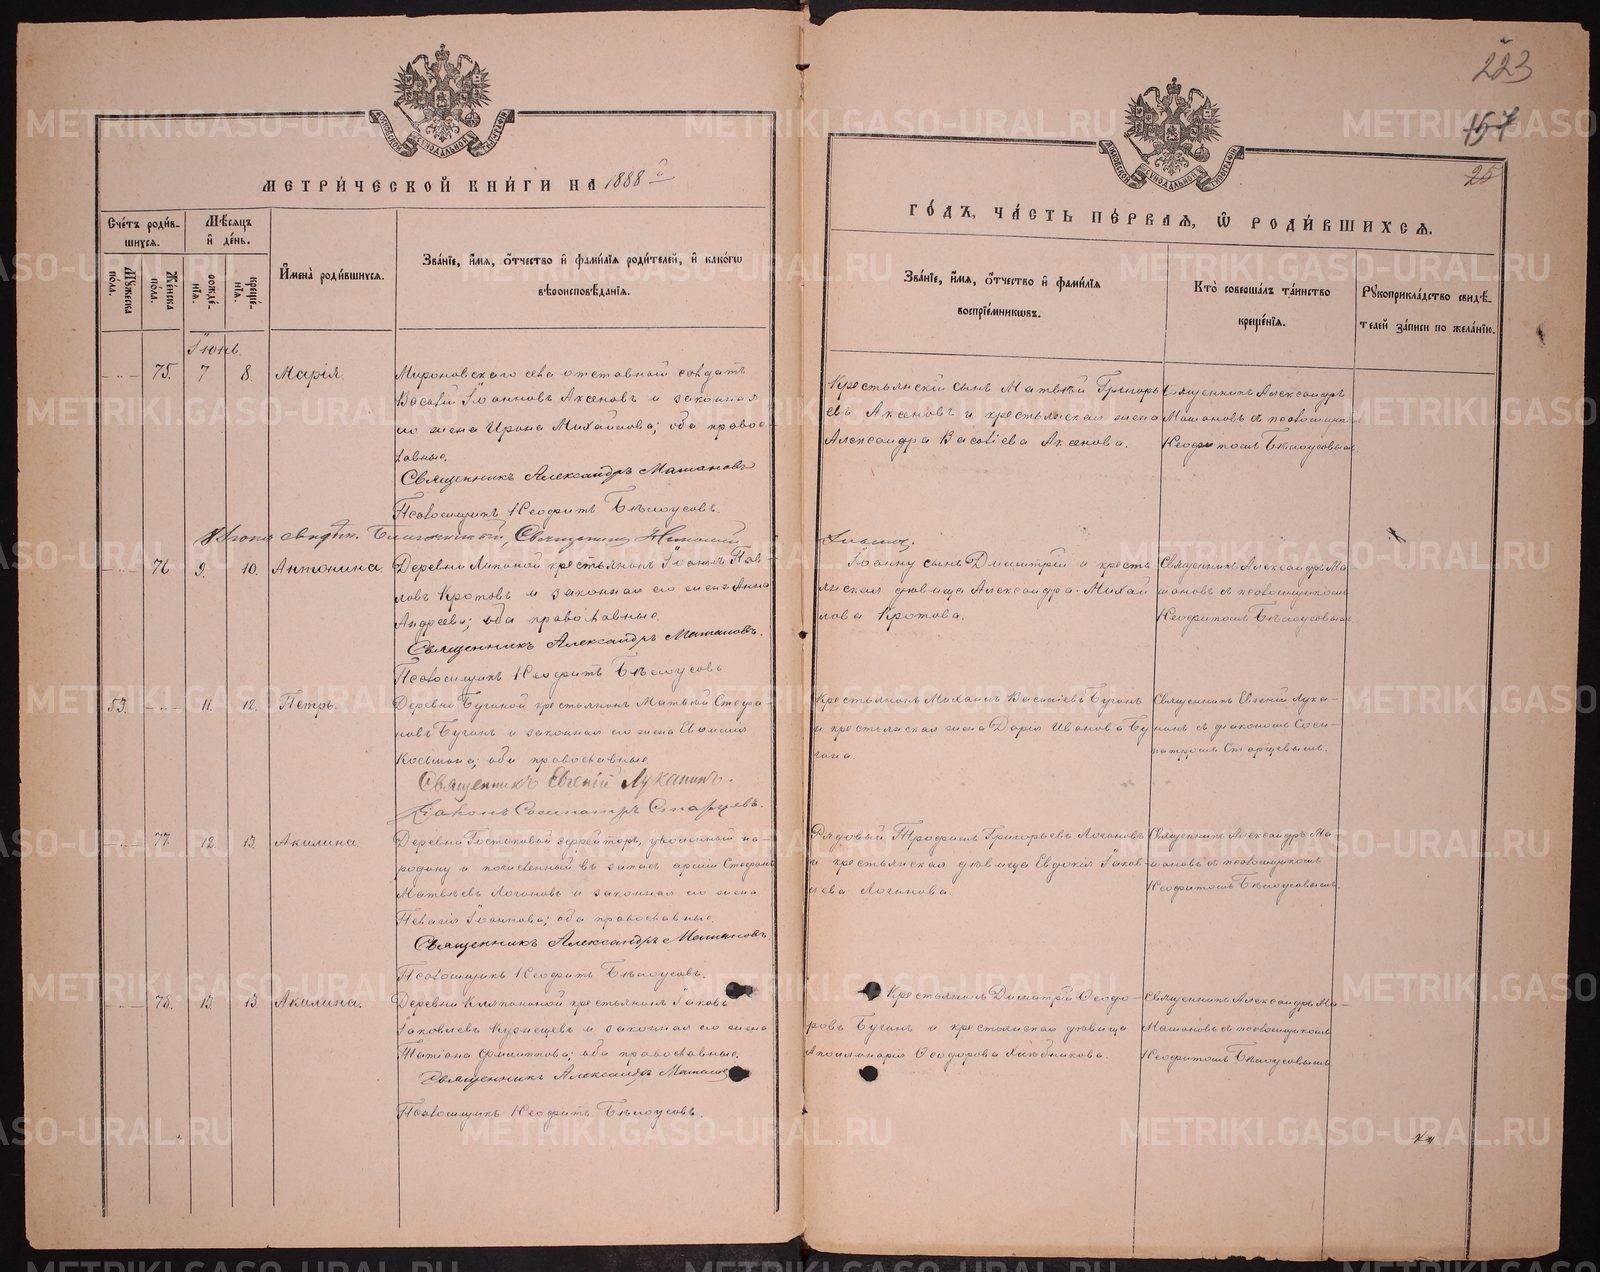 223
157
25
МОСКОВСКОЙ СѴНОДАЛЬНОЙ ТИПОГРАФІИ
МОСКОВСКОЙ СѴНОДАЛЬНОЙ ТИПОГРАФІИ
МЕТРИ́ЧЕСКОЙ КНИ́ГИ НА 1888й
ГО́ДЪ, ЧА́СТЬ ПЕ́РВАЯ, Ѡ҆ РОДИ́ВШИХСЯ.
Сче́тъ роди́в-
шихся.
Мꙋжеска по́ла.
Же́нска по́ла.
Мѣ́сяцъ
и҆ де́нь.
рожде́-
нїя.
креще́-
нїя.
И҆мена̀ роди́вшихся.
Зва́нїе, и҆́мя, ѻ҆́тчество и҆ фами́лїя роди́телей, и҆ како́гѡ
вѣроисповѣ́данїя.
Зва́нїе, и҆́мя, ѻ҆́тчество и҆ фами́лїя
воспрїе́мникѡвъ.
Кто̀ соверша́лъ та́инство
креще́нїя.
Рꙋкоприкла́дство свидѣ́-
телей за́писи по жела́нїю.
Іюнь.
75. 7 8. Марія.
Мироновскаго села отставной солдатъ
Василій Іоанновъ Аксеновъ и законная
его жена Ирина Михайлова; оба право-
славные.
Священникъ Александръ Матановъ
Псаломщикъ Неофитъ Бѣлоусовъ.
Крестьянскій сынъ Матвѣй Григорь-
евъ Аксеновъ и крестьянская жена
Александра Васильева Аксенова.
Священникъ Александръ
Матановъ съ псаломщикомъ
Неофитомъ Бѣлоусовымъ
Благочинный, Священникъ Николай
76 9. 10. Антонина.
Деревни Липиной крестьянинъ Іоаннъ Пав-
ловъ Кротовъ и законная его жена Анна
Андреева; оба православные.
Священникъ Александръ Матановъ.
Псаломщикъ Неофитъ Бѣлоусовъ
сынъ Димитрій и кресть-
янская дѣвица Александра Михай-
лова Кротова.
Священникъ Александръ Ма-
тановъ съ псаломщикомъ
Неофитомъ Бѣлоусовымъ
53. 11. 12. Петръ.
Деревни Бучиной крестьянинъ Матвѣй Стефа-
новъ и законная его жена
Косьмина; оба православные
Священникъ Евгеній Луканинъ.
Діаконъ Сосипатръ Старцевъ.
Крестьянинъ Михаилъ Васильевъ
и крестьянская жена Дарія Иванова
Священникъ Евгеній Лука-
нинъ съ діакономъ Соси-
патромъ Старцевымъ.
77 12. 13. Акилина.
Деревни ефрейторъ, уволенный на
родину и въ запасъ арміи Стефанъ
Матвѣевъ Логиновъ и законная его жена
Пелагія Іоаннова; оба православные.
Священникъ Александръ Матановъ
Псаломщикъ Неофитъ Бѣлоусовъ.
Рядовый Трофимъ Григорьевъ Логиновъ
и крестьянская дѣвица Евдокія Іаков-
лева Логинова.
Священникъ Александръ Ма-
тановъ съ псаломщикомъ
Неофитомъ Бѣлоусовымъ.
78. 13. 13. Акилина.
Деревни крестьянинъ Іаковъ
Іаковлевъ и законная его жена
Татіана Филиппова; оба православные.
Священникъ Александръ Матановъ
Псаломщикъ Неофитъ Бѣлоусовъ.
Крестьянинъ Димитрій Ѳеодо-
ровъ и крестьянская дѣвица
Аполлинарія Ѳеодорова Хлѣбникова.
Священникъ Александръ Ма-
тановъ съ псаломщикомъ
Неофитомъ Бѣлоусовымъ
METRIKI.GASO-URAL.RU